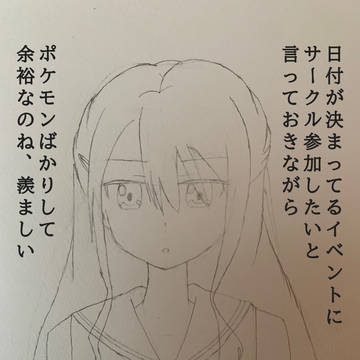 日付が決まってるイベントに
サークル参加したいと
言っておきながら
ポケモンばかりして
余裕なのね、羨ましい